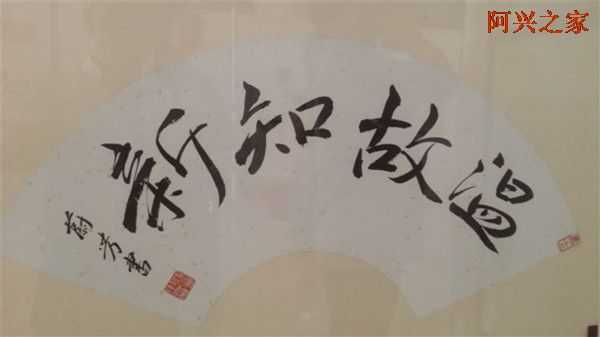 阿兴之家
温故知新
蔚芳书